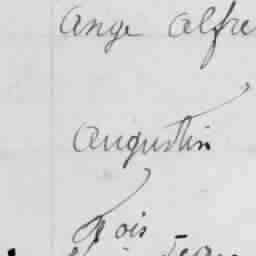 Ange Alfre
Augustin
ois
Jean